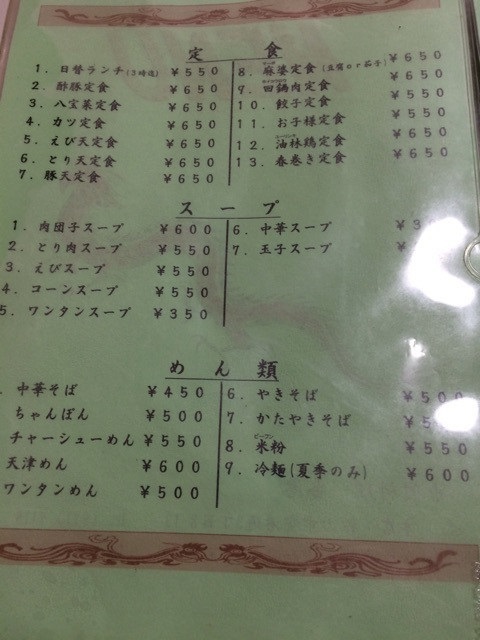 定食
1. 日替ランチ(3時迄) ¥550
2. 酢豚定食 ¥650
3. 八宝菜定食 ¥650
4. カツ定食 ¥650
5. えび天定食 ¥650
6. とり天定食 ¥650
7. 豚天定食 ¥650
8. 麻婆定食(豆腐or茄子) ¥650
9. 回鍋肉定食 ¥650
10. 餃子定食 ¥550
11. お子様定食 ¥550
12. 油林鶏定食 ¥650
13. 春巻き定食 ¥650
スープ
1. 肉団子スープ ¥600
2. とり肉スープ ¥550
3. えびスープ ¥550
4. コーンスープ ¥550
5. ワンタンスープ ¥350
6. 中華スープ
7. 玉子スープ
めん類
中華そば ¥450
ちゃんぽん ¥500
チャーシューめん ¥550
天津めん ¥600
ワンタンめん ¥500
6. やきそば ¥500
7. かたやきそば
8. 米粉 ¥550
9. 冷麺(夏季のみ) ¥600